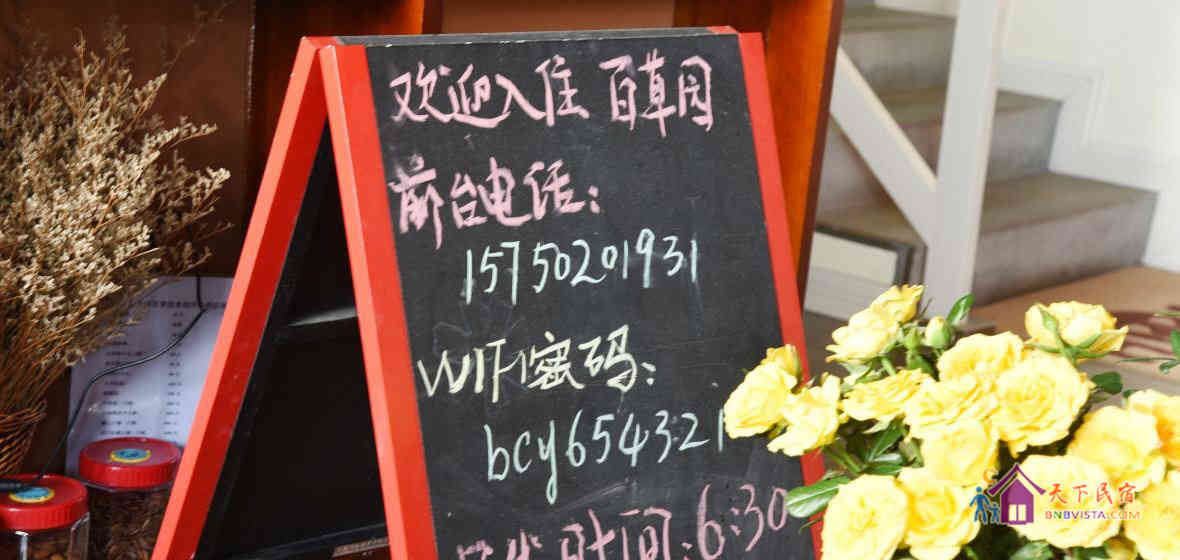 欢迎入住 百草园
前台电话:
15750201931
WIFI密码:
bcy654321
时间:6:30
天下民宿
BNBVISTA.COM